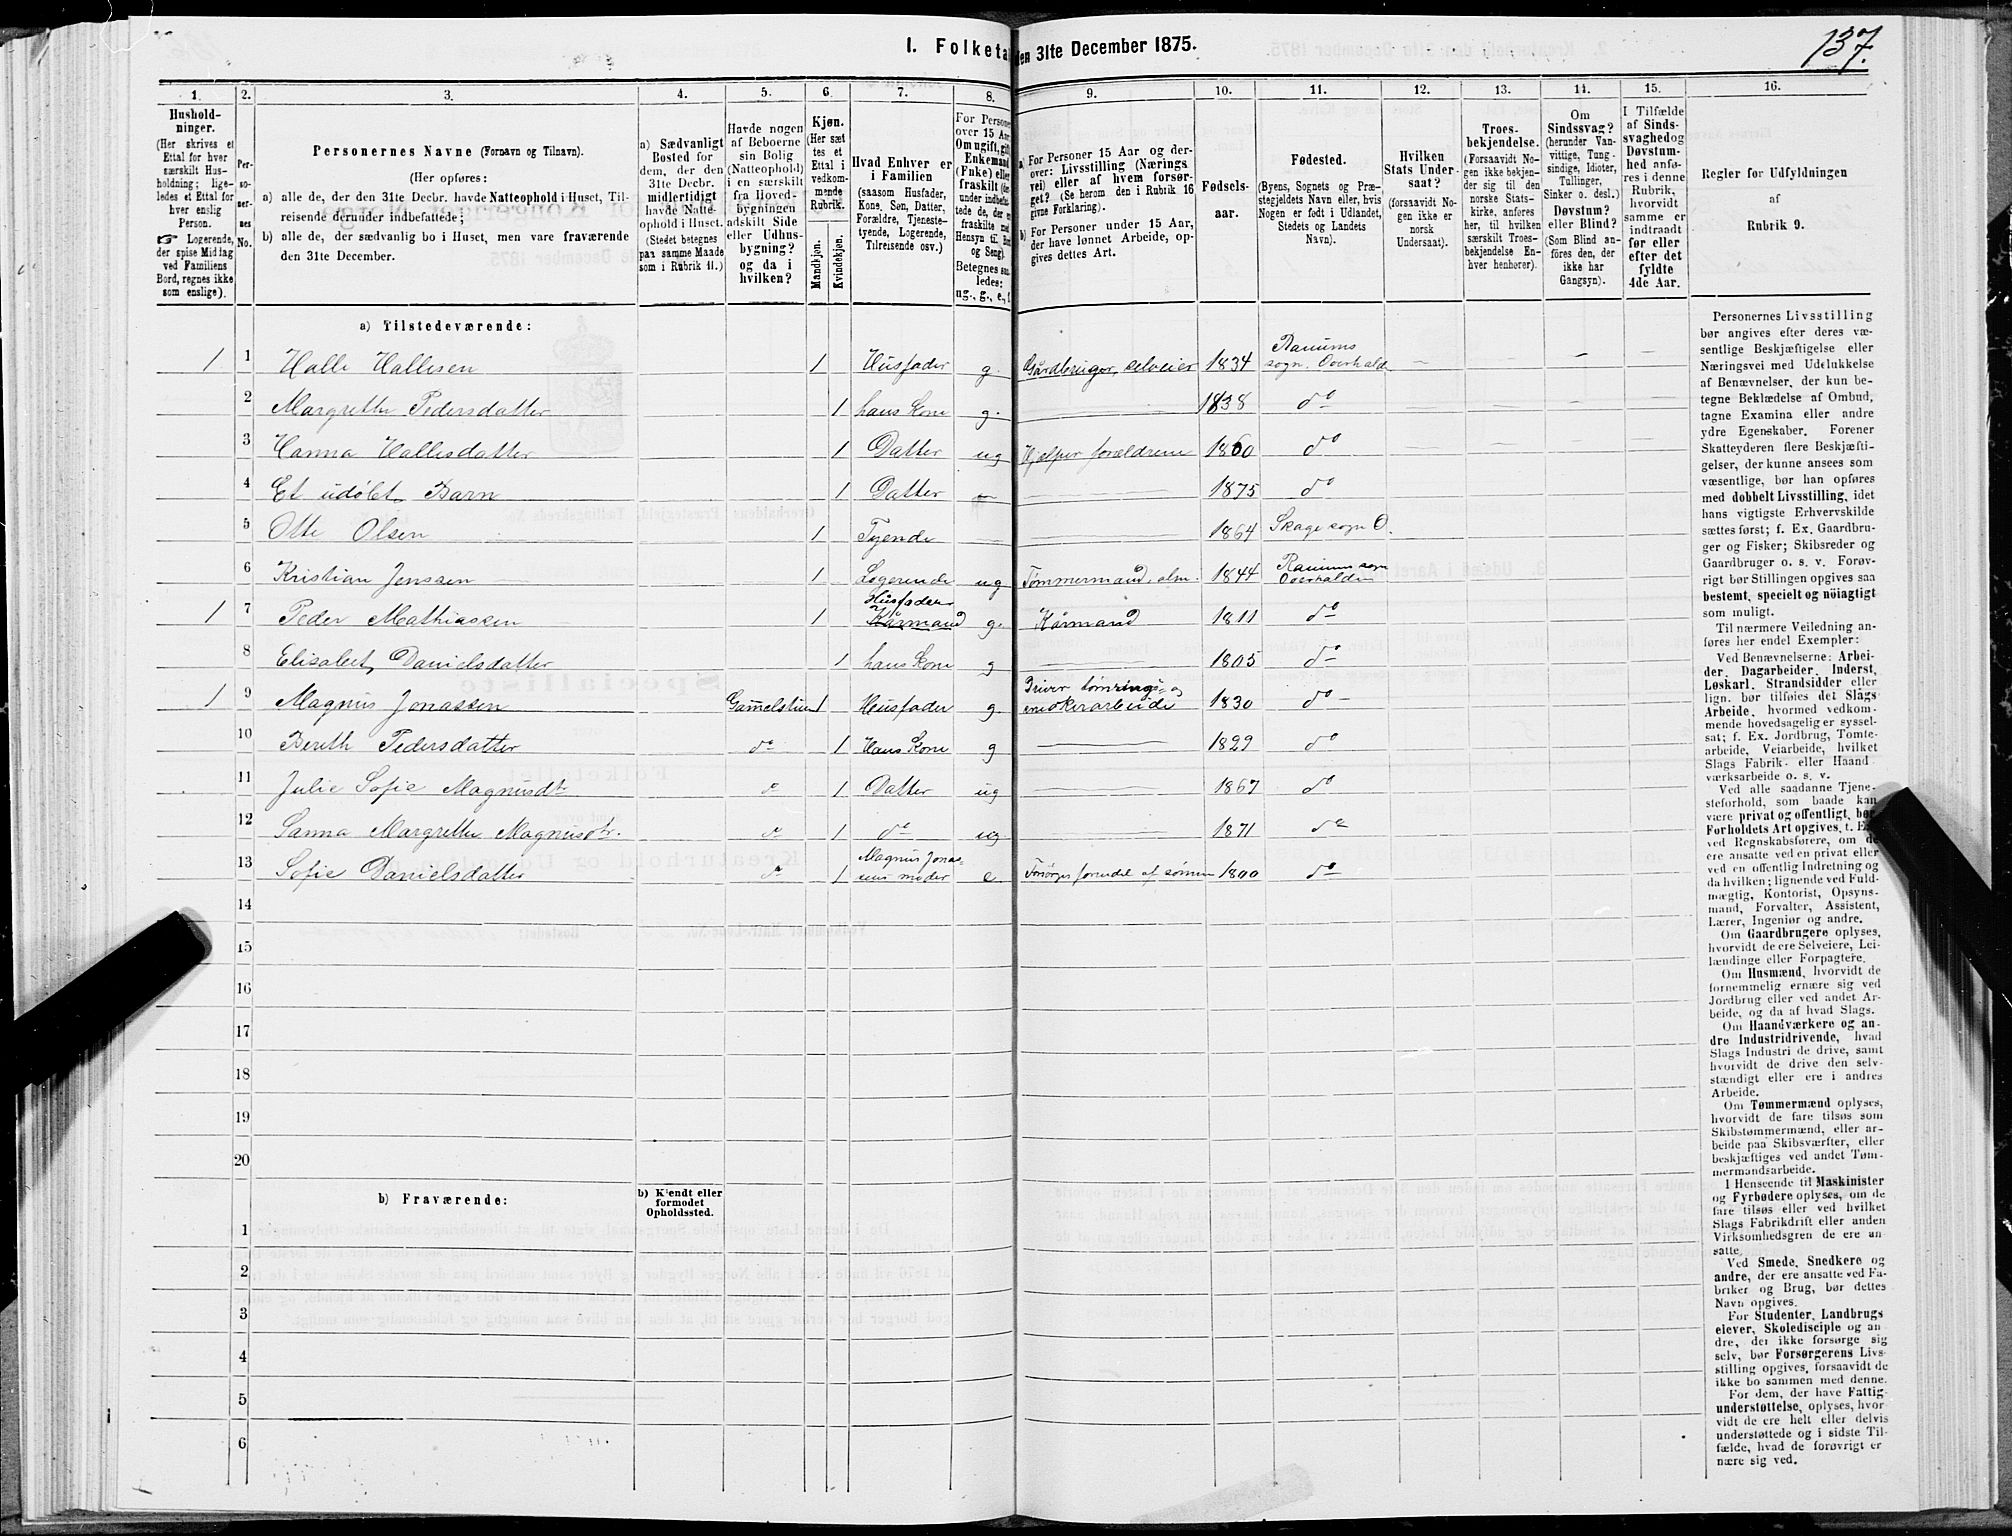 137.
I. Folketal den 31te December 1875.
1. 2. 3. 4. 5. 6. 7. 8. 9. 10. 11. 12. 13. 14. 15. 16.
Hushold-
ninger.
(Her skrives et
Ettal for hver
særskilt Hus-
holdning; lige-
ledes et Ettal for
hver enslig
Person.
☞ Logerende,
der spise Middag
ved Familiens
Bord, regnes ikke
som enslige).
Per-
so-
ner-
nes
No.
Personernes Navne (Fornavn og Tilnavn).
(Her opføres:
a) alle de, der den 31te Decbr. havde Natteophold i Huset, Til-
reisende derunder indbefattede;
b) alle de, der sædvanlig bo i Huset, men vare fraværende
den 31te December.
a) Sædvanligt
Bosted for
dem, der den
31te Decbr.
midlertidigt
havde Natte-
ophold i Huset.
(Stedet betegnes
paa samme Maade
som i Rubrik 11.)
Havde nogen
af Beboerne
sin Bolig
(Natteophold)
i en særskilt
fra Hoved-
bygningen
adskilt Side
eller Udhus-
bygning?
og da i
hvilken?
Kjøn.
(Her sæt
tes et
Ettal i
vedkom-
mende
Rubrik.
Mandkjøn.
Kvindekjøn.
Hvad Enhver er
i Familien
(saasom Husfader,
Kone, Søn, Datter,
Forældre, Tjeneste-
tyende, Logerende,
Tilreisende osv.)
For Personer
over 15 Aar
Om ugift, gift
Enkemand
(Enke) eller
fraskilt
Betegnes saa-
ledes:
ug., g., e., f.
a) For Personer 15 Aar og der-
over: Livsstilling (Nærings
vei) eller af hvem forsør-
get? (Se herom den i Rubrik 16
givne Forklaring).
b) For Personer under 15 Aar,
der have lønnet Arbeide, op-
gives dettes Art.
Fødsels-
aar.
Fødested.
(Byens, Sognets og Præ-
stegjeldets Navn eller, hvis
Nogen er født i Udlandet,
Stedets og Landets
Navn).
Hvilken
Stats Under-
saat?
(forsaavidt No-
gen ikke er
norsk
Undersaat).
Troes-
bekjendelse.
(Forsaavidt No-
gen ikke bekjen-
der sig til den
norske Stats-
kirke, anføres
her, til hvilken
særskilt Troes-
bekjendelse En-
hver henhører).
Om
Sindssvag?
(herunder Van-
vittige, Tung-
sindige, Idioter,
Tullinger,
Sinker o. desl.)
Døvstum?
eller Blind?
(Som Blind an-
føres den, der
ikke har
Gangsyn).
I Tilfælde
af Sinds-
svaghed og
Døvstum-
hed anfø-
res i denne
Rubrik,
hvorvidt
samme er
indtraadt
før eller
efter det
fyldte
4de Aar.
Regler for Udfyldningen
af
Rubrik 9.
a) Tilstedeværende:
1 1 Halle Hallesen 1 Husfader g. Gårdbruger, selveier 1834 Ranums sogn, Overhald — — — —
2 Margrethe Pedersdatter 1 hans Kone g. — 1838 do — — — —
3 Hanna Hallesdatter 1 Datter ug Hjelper forældrene 1860 do
4 Et udøbt Barn 1 Datter — — 1875 do
5 Otte Olsen 1 Tyende — — 1864 Skage sogn O.
6 Kristian Jenssen 1 Logerende ug Tømmermand, alm. 1844 Ranum sogn Overhalden
1 7 Peder Mathiassen 1 Husfader Kårmand g. Kårmand 1811 do
8 Elisabet Danielsdatter 1 hans Kone g — 1805 do
1 9 Magnus Jonassen Gammelstuen 1 Husfader g. Driver tømrings- og snekerarbeide 1830 do
10 Bereth Pedersdatter do 1 Hans Kone g — 1829 do
11 Julie Sofie Magnusdt do 1 Datter ug — 1867 do
12 Sanna Margrethe Magnusdtr. do 1 do ug — 1871 do
13 Sofie Danielsdatter do 1 Magnus Jonas- sens moder e Forsørges forendel af sønnen 1800 do
14
15
16
17
18
19
20
b) Fraværende:
b) Kjendt eller
formodet
Opholdssted.
1
2
3
4
5
6
Personernes Livsstilling
bør angives efter deres væ-
sentlige Beskjæftigelse eller
Næringsvei med Udelukkelse
af Benævnelser, der kun be-
tegne Beklædelse af Ombud,
tagne Examina eller andre
ydre Egenskaber. Forener
Skatteyderen flere Beskjæfti-
gelser, der kunne ansees som
væsentlige, bør han opføres
med dobbelt Livsstilling, idet
hans vigtigste Erhvervskilde
sættes først; f. Ex. Gaardbru-
ger og Fisker; Skibsreder og
Gaardbruger o. s. v. Forøv-
rigt bør Stillingen opgives saa
bestemt, specielt og nöiagtigt
som muligt.
Til nærmere Veiledning an-
føres her endel Exempler:
Ved Benævnelserne: Arbei-
der, Dagarbeider, Inderst,
Løskarl, Strandsidder eller
lign. bør tilføies det Slags
Arbeide, hvormed vedkom-
mende hovedsagelig er syssel-
sat; f. Ex. Jordbrug, Tomte-
arbeide, Veiarbeide, hvilket
Slags Fabrik- eller Haand
værksarbeide o. s. v.
Ved alle saadanne Tjene-
steforhold, som baade kan
være privat og offentligt, bør
Forholdets Art opgives, t. Ex.
ved Regnskabsførere, om de
ere ansatte ved en privat eller
ved en offentlig Indretning og
da hvilken; lignende ved Fuld-
mægtig, Kontorist, Opsyns-
mand, Forvalter, Assistent,
Lærer, Ingeniør og andre.
Om Gaardbrugere oplyses,
hvorvidt de ere Selveiere, Lei-
lændinge eller Forpagtere.
Om Husmænd, hvorvidt de
fornemmelig ernære sig ved
Jordbrug eller ved andet Ar-
beide, og da af hvad Slags.
Om Haandværkere og an-
dre Industridrivende, hvad
Slags Industri de drive, samt
hvorvidt de drive den selv-
stændigt eller ere i andres
Arbeide.
Om Tømmermænd oplyses,
hvorvidt de fare tilsøs som
Skibstømmermænd, eller ar-
beide paa Skibsværfter, eller
beskjæftiges ved andet Tøm-
mermandsarbeide.
I Henseende til Maskinister
og Fyrbødere oplyses, om de
fare tilsøs eller ved hvilket
Slags Fabrikdrift eller anden
Virksomhedsgren de ere an-
satte.
Ved Smede, Snedkere og
andre, der ere ansatte ved Fa-
briker og Brug, bør dettes
Navn opgives.
For Studenter, Landbrugs
elever, Skoledisciple og an
dre, der ikke forsørge sig
selv, bør Forsørgerens Livs-
stilling opgives, forsaavidt de
ikke bo sammen med denne.
For dem, der have Fattig-
understøttelse, oplyses, hvor-
vidt de ere helt eller delvis
understøttede og i sidste Til-
fælde, hvad de forøvrigt er
nære sig ved.